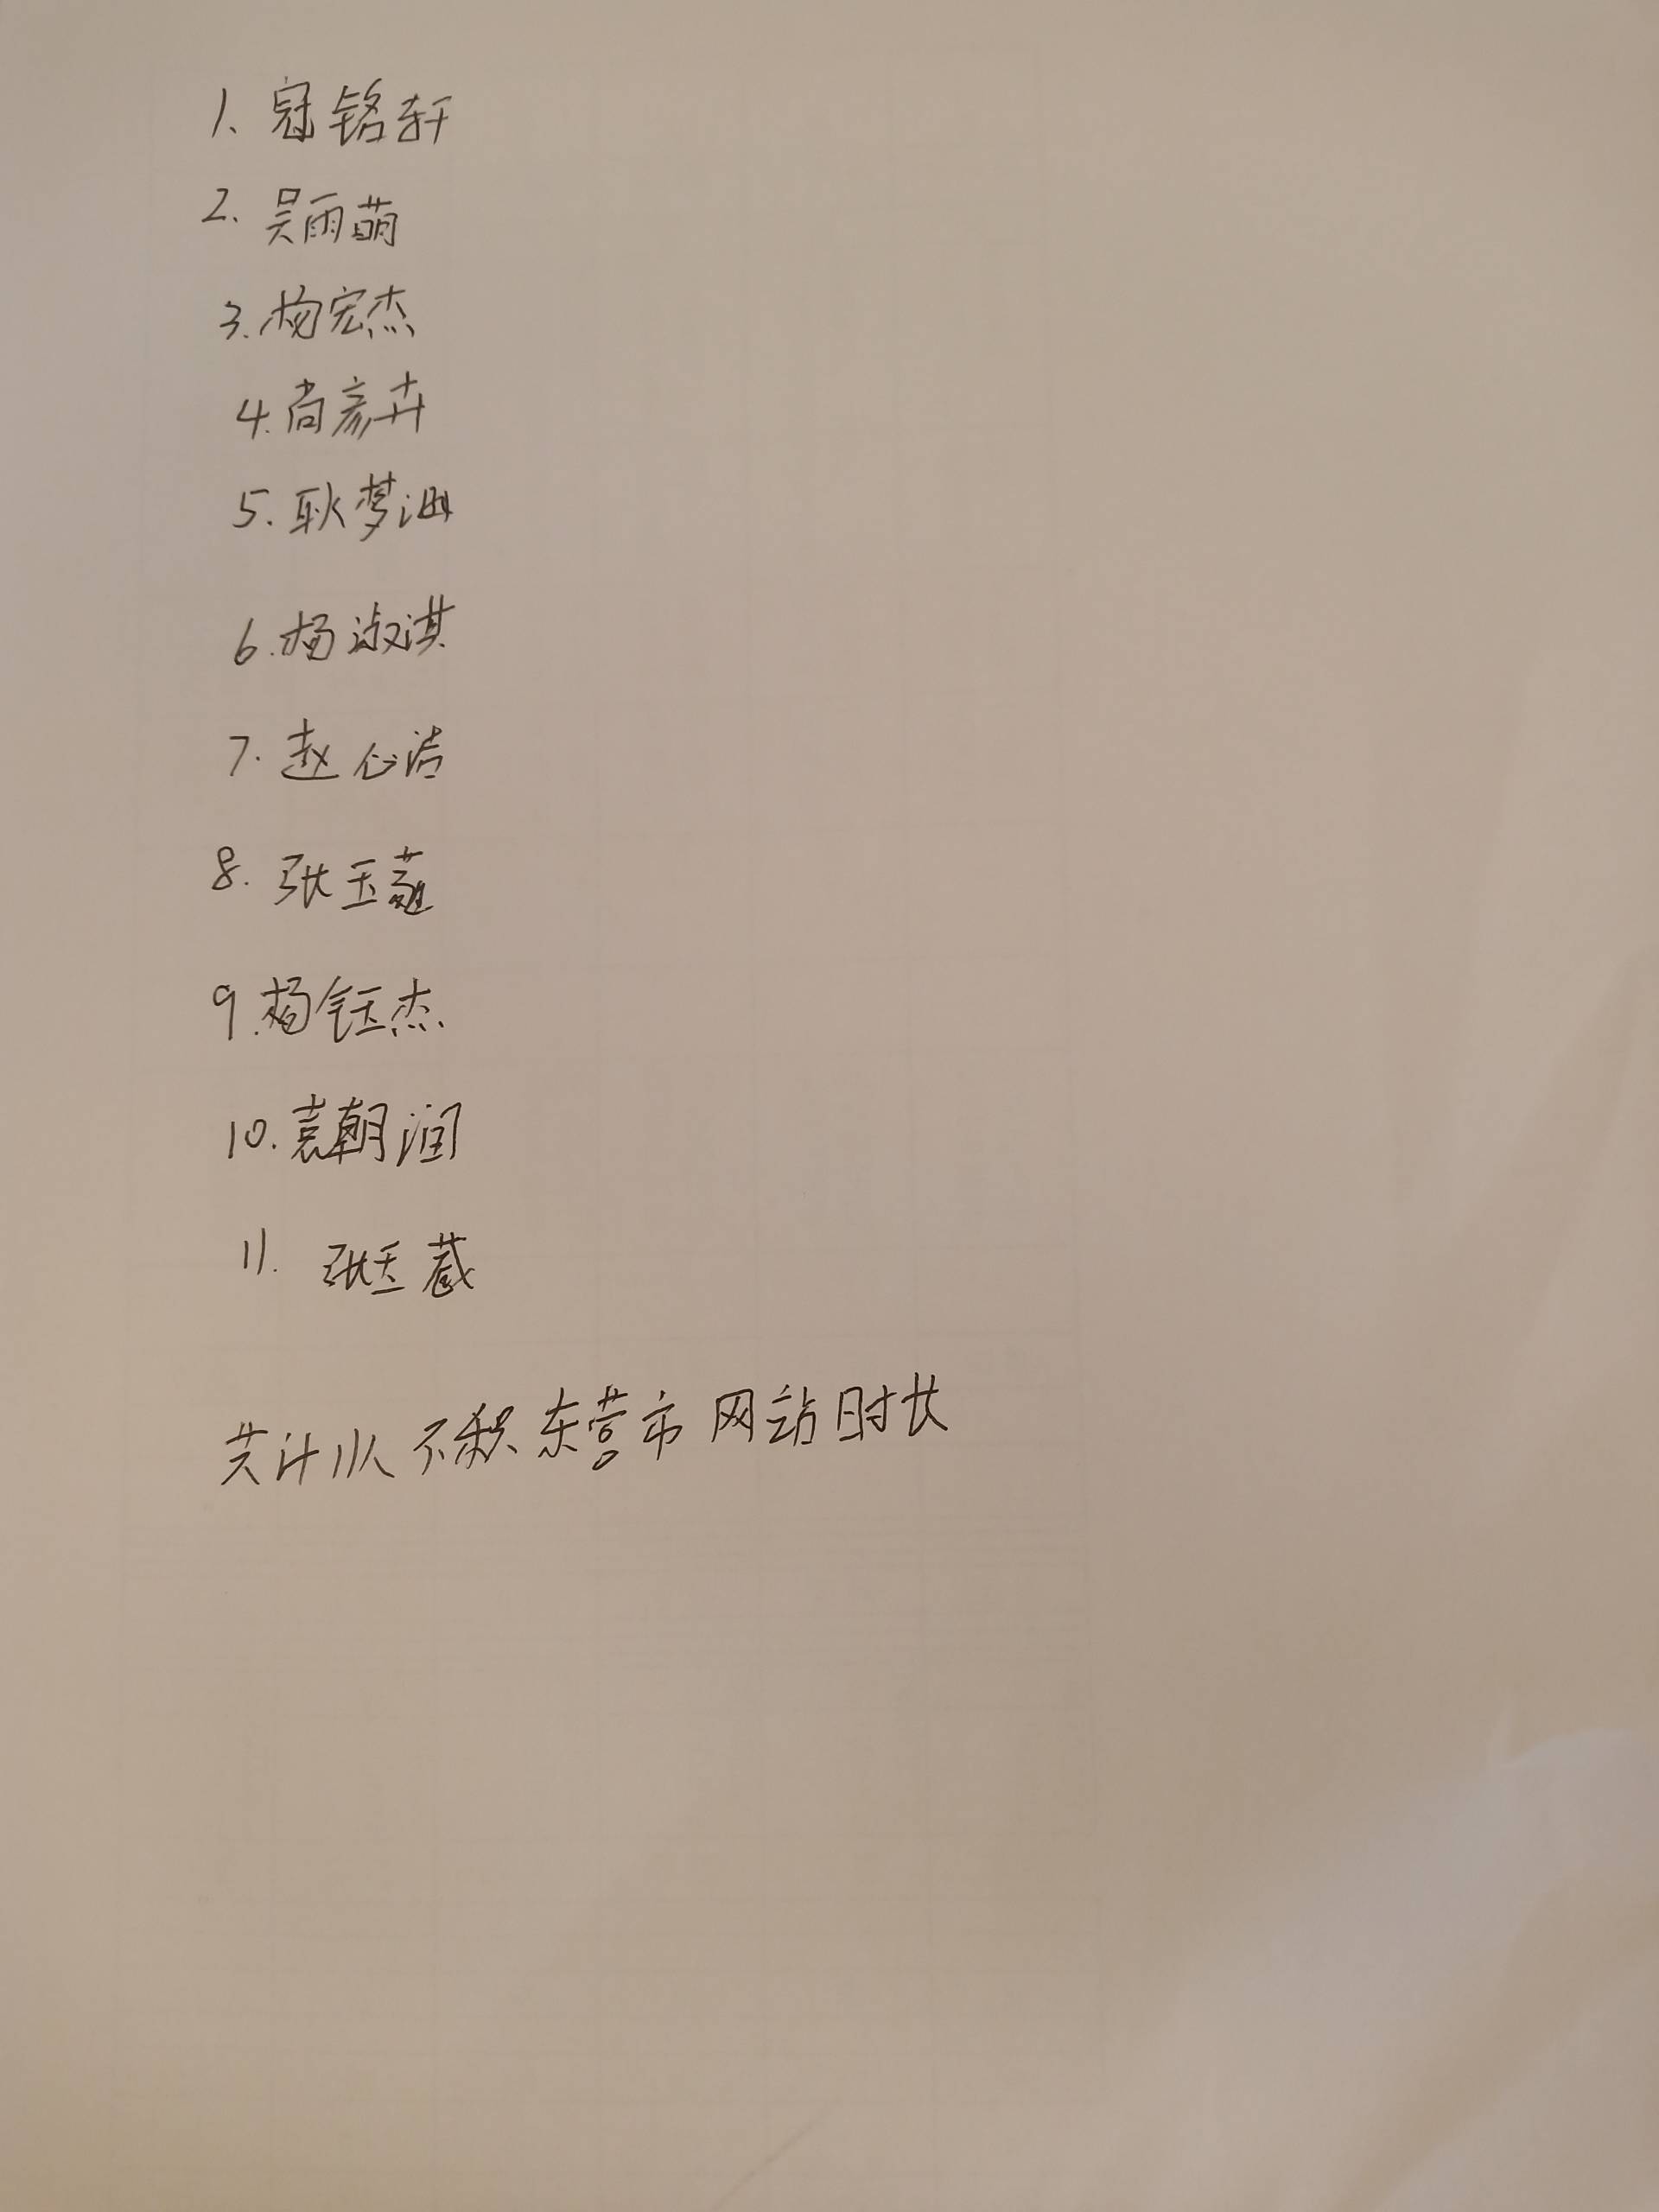 1、冠铭轩
2、吴雨萌
3.杨宏杰
4.尚彦卉
5.耿梦
6.杨淑淇
7.赵心洁
8.张玉
9.杨钰杰
10.袁朝润
11.张玉葳
共计11人 不积东营市网站时长